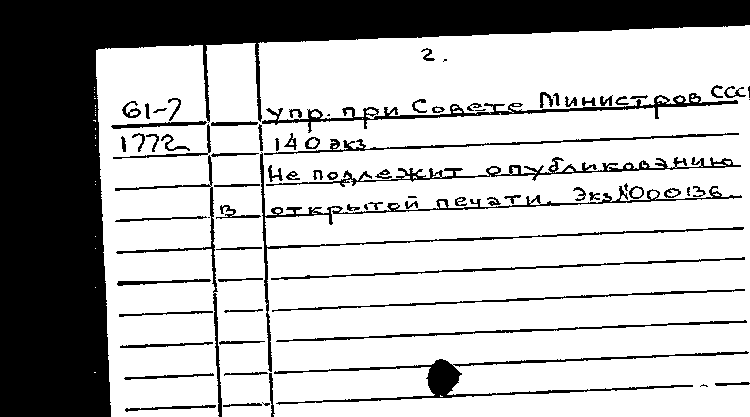 2.
61-7 упр. при Совете Министров СССР
1772 140 экз.
Не подлежит опубликованию
в открытой печати. Экз №000136.